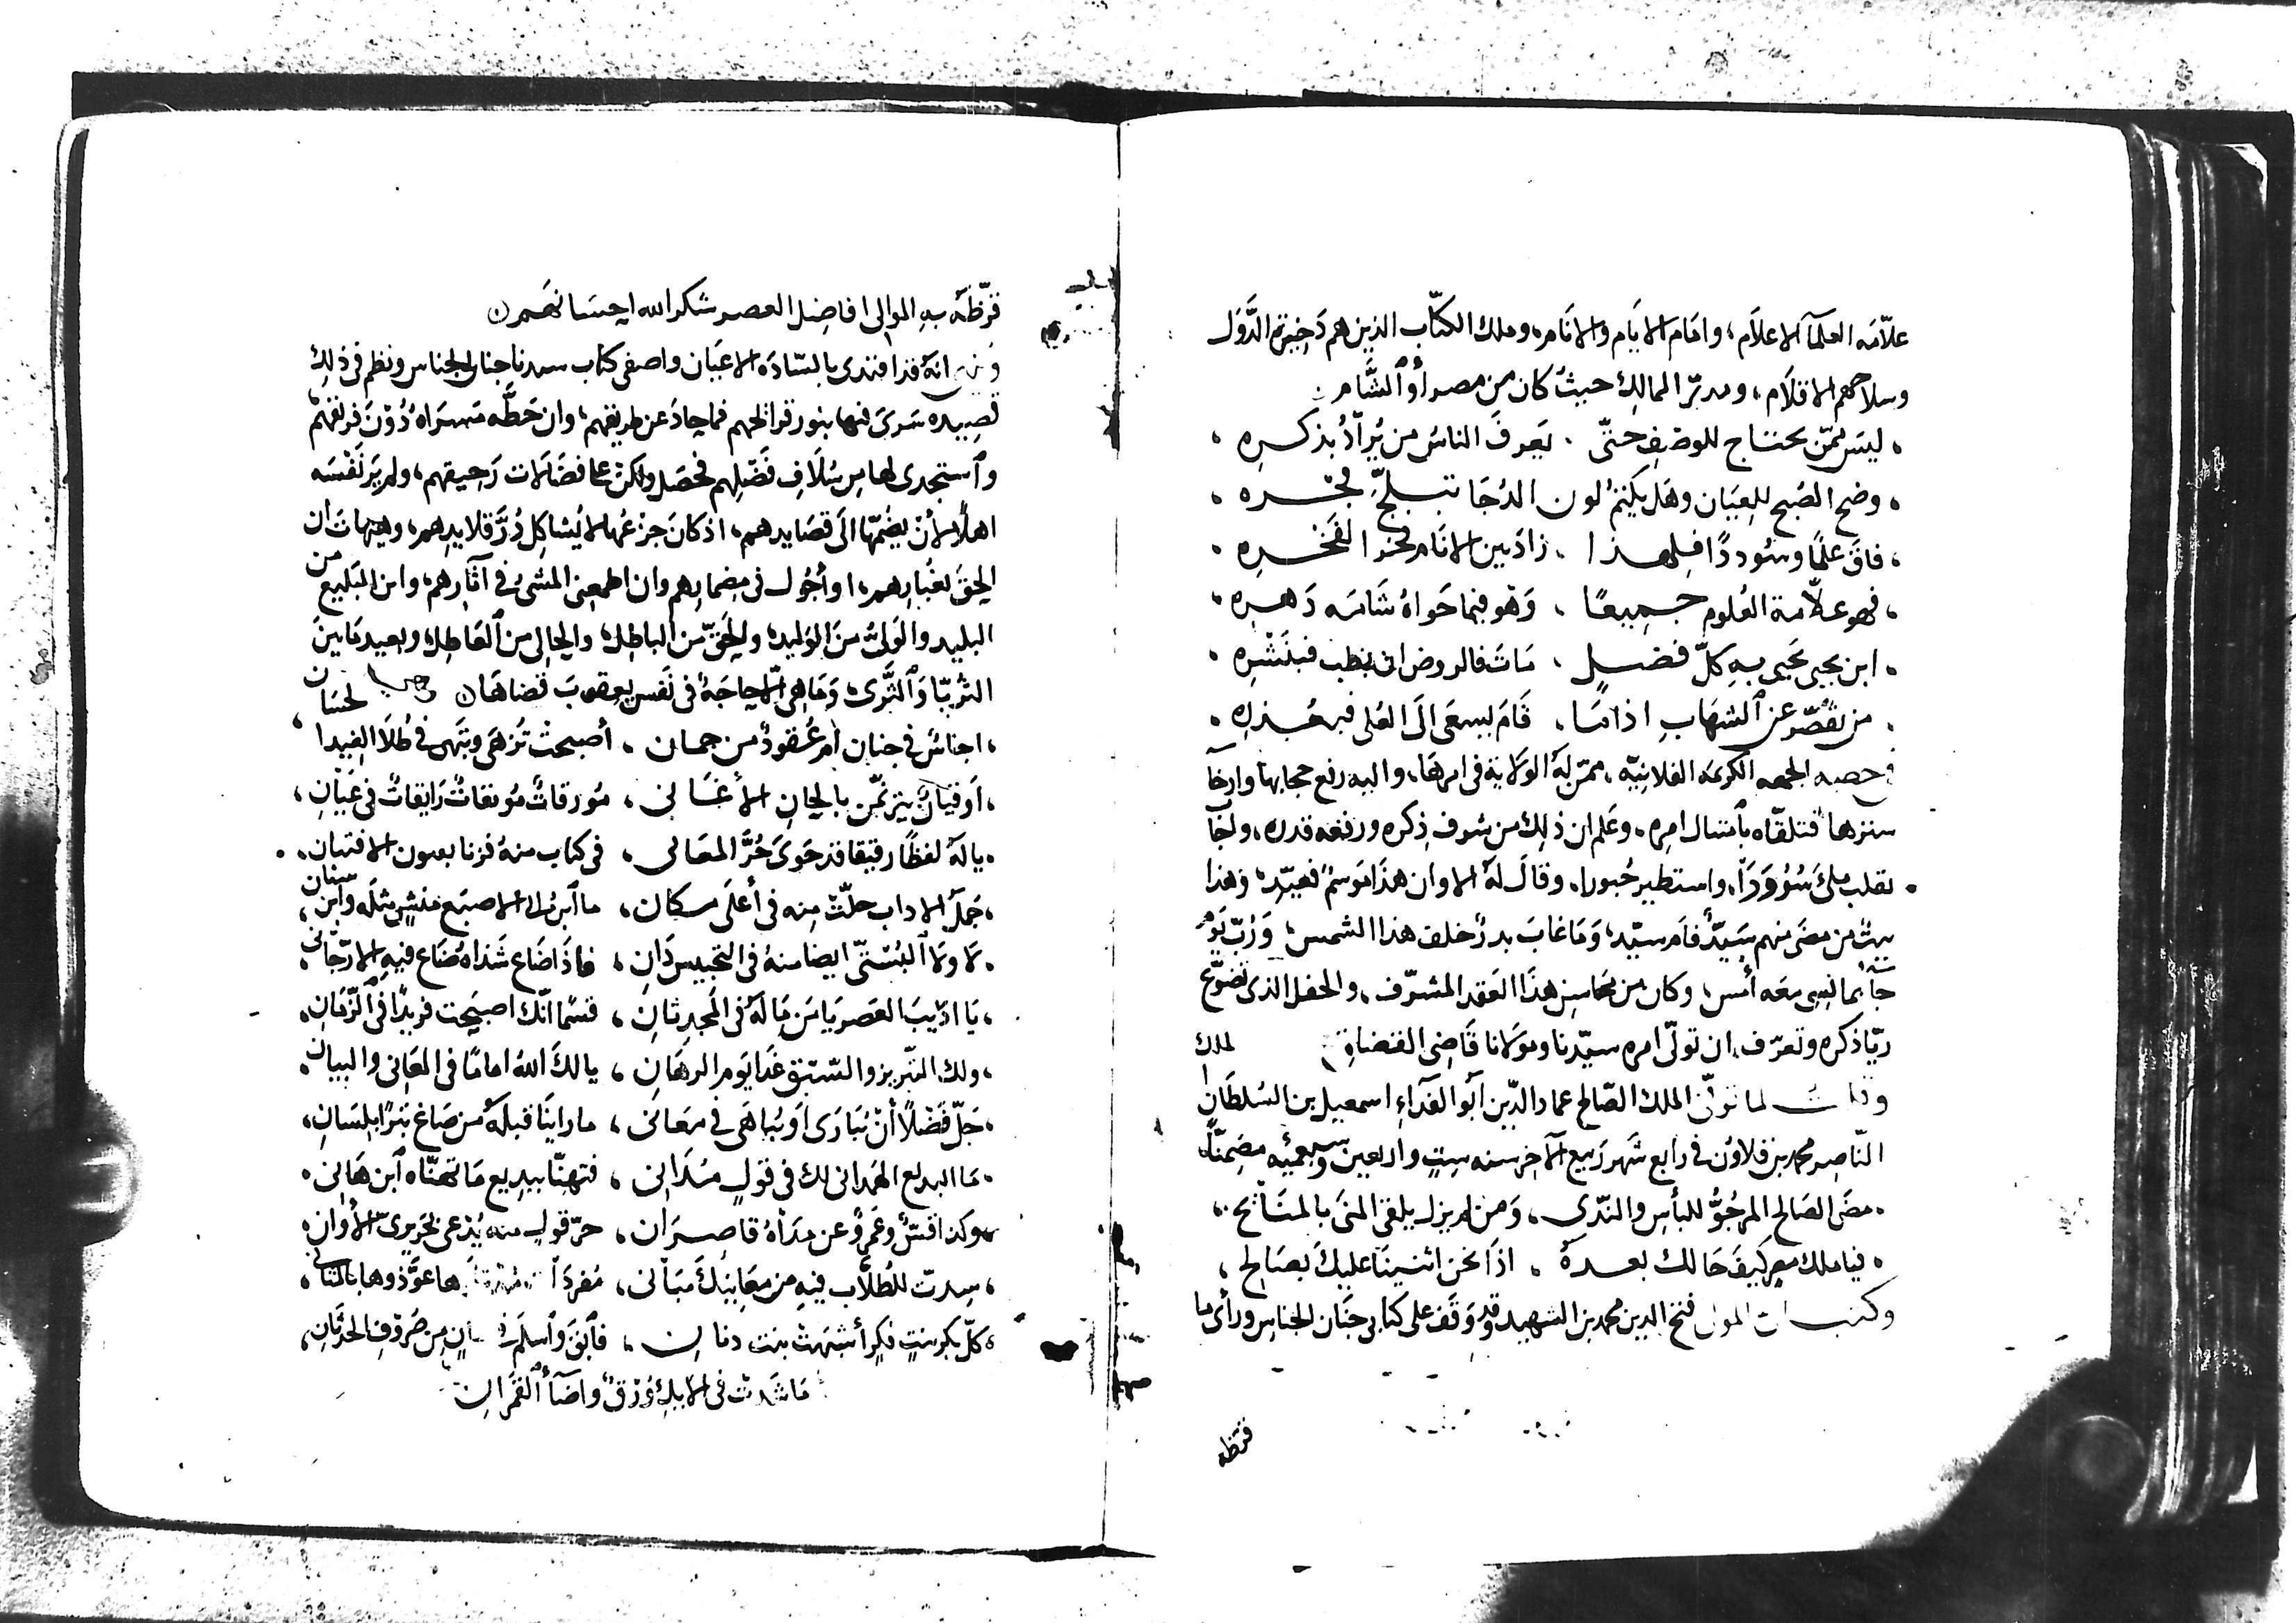 علّامَه العلمآ الاعلَام، وامَام الايَام والانَام، وملك الكتّاب الذين هم ذخيرة الدَّوَل
وسلاحهم الاقلَام، ومدبّر الممالِك حيثُ كان من مصر أو الشَّام
، ليسَ ممّن يحتاج للوصْفِ حتّى . يَعرفَ الناسُ من يُرادُ بذكره ،
، وضح الصُبح للعِيَان وهَل يكتمُ لون الدُجَا تبلجّ فجره ،
، فاق علمًا وسُوددًا فلهذا . زادَ بين الانَام فخرا لفَخره ،
، فهو علاّمة العُلوم جميعًا . وَهو فيما حَواهُ شَامَه دَهره ،
. ابن يحيى يَحيى بهِ كلّ فضل . مَاتَ فالروض ان يطب فبنَشْرِه .
. من يقصّر عن الشهَابِ اذا مَا . قَام يسعَى الَى العُلى فبعُذره .
الجهه الكريمَه الفلانيّه، ممّن لهُ الولَاية فى امرهَا، واليه رفع حجابها وارخآ
سترها فتلقّاه بامتثال امره، وعَلم ان ذلِك من شرف ذِكره ورفعه قدره، وجآ
بقلب ملئَ سُرُورَاً، واستطير حُبورا، وقالَ لهُ الاوان هذَا مَوسمٌ فعيّد، وهذا
بيتٌ من مضَى منهم سَيدٌ قَام سيّد، وَمَا غابَ بدرٌ خلف هذا الشمس، وَرُبّ يَوم
جآ بما نُسى معَه أمس، وكان من محَاسِن هذَا العَقد المشرّف، والحفل الذى تضوّع
ريّا ذكره وتعرّف، ان تولّى امره سيّدنا ومَولانا قَاضِى القضاة
وقلت لما توفّى الملك الصّالح عماد الدّين ابو الفدَآءِ اسمعيل بن السُلطَان الملك
النّاصِر محمد بن قلاوُن فى رابع شَهر رَبيع الآخر سنه سِت واربعين وسبعمئه مضِمنًا
. مضَى الصَالح المرجُوُّ للبأسِ والنّدى ، وَمن لم يزل يلقى المنَى بالمنَائح .
. فيا ملك مصر كيفَ حَالك بعدهُ . اذَا نحن اثنينَا عليكَ بصَالِح ،
وكتب المولى فتح الدين محمد بن الشهيد وقد وَقَف على كتابى جنَان الجناسِ ورأى ما
قرّظه
قرّظهُ بهِ الموالِى افاضِل العصر شكر الله احسَانهَم
انهُ قد اقتدى بالسّادَه الاعيَان واصفى كتاب سيدنا جنان الجناس ونظم فى ذلِك
قصِيده سَرَى فيها بنور قرائحهم فما حادَ عن طريقهم، وان حَطَّه مَسرَاهُ دُوْنَ فريقهمْ
واستجدى لها من سُلَافِ فَضْلِهم فحصَل ولكن على فضَالَات رَحيقهم، ولم يَرَ نَفْسَه
اهلًا لأنْ يضُمّهَا الَى قصَايدهم، اذ كَانَ جزعُها لا يُشاكِل دُرَّ قلايدِهم، وهيهاتَ ان
الحَق بغُبَارهم، او أجُول فى مضمارهِم وان اطمعنى المشىُ فى آثارهم، واين البَليغ من
البليد والوَلىّ منَ الوَليد، والحَقّ من الباطِل، والحالى من العَاطِل، وبعيد مَا بينَ
الثريّا وَالثَّرى، وَمَا هى الّا حاجَة فى نَفس يعقوبَ قضاهَا وهى
، اجناسٌ فى جنان أم عُقودٌ من جمان . أصبحتْ تُزهى وتَهى فى طُلَا الغيد الحسَان ،
، اَو قيانٌ يترنّمن بالحان الأغَانى ، مُورقاتٌ مُونقاتٌ رَايقاتٌ فى عَيانِ ،
. يا لهُ لفظًا رقيقا قد حَوىَ حُرَّ المعَالى ، فى كتاب منهُ فزنا بعيون الافتنان .
، جَملَة الاداب حلّتْ مِنه فى أعلَى مكان ، ما ابن ابى الاصبَع منشٍ مثلَه وابن سنان ،
. لا ولا البُسْتىّ ايضا منهُ فى التجنيس دَانِ ، فاذَا ضَاع شَذاهُ ضَاع فيهِ الارّجَانى .
، يَا اديبَ العَصر يَا مَن مَا لهُ فى المجدِ ثانِ ، قسَمًا انّك اصبَحت فريدًا فى الزّمَانِ .
، ولك التّبريز والسّبق غدَا يَوم الرهَانِ ، يا لكَ اللهُ امامًا فى المعَانى والبيان .
، جَلّ فَضْلًا أنْ يُبَارَى اَو يُباهَى فى مَعَانى ، ما راينَا قبلَهُ من صَاغ تبرًا بلِسَانِ ،
. مَا البديع الهَمدانى لك فى قولٍ مُدَانِى ، فتهنّا ببديع مَا تهنّاه ابن هَانِى .
وكذا قسٌّ وعَمروٌ عن مدَاهُ قاصرَان ، حرّ قولٍ منه يُدْعى بحَريرىّ الأوان .
، سِدتَ للطُلّاب فيهِ من مَعَانيكَ مبَانى ، مُفردَا ها عوّذوها بالمثانى ،
، كلّ بكر بنتِ فكرٍ أشبَهتْ بنت دنان ، فابقَ واسلم من صُرُوفِ الحدثَانِ ،
مَا شَدتْ فى الايكِ وُرْقٌ واضَآءَ القمَران